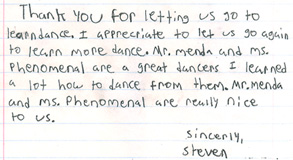 Thank you for letting us go to
learndance. I appreciate to let us go again
to learn more dance. Mr. menda and ms.
Phenomenal are a great dancers I learned
a lot how to dance from them. Mr. menda
and ms. Phenomenal are really nice
to us.
sincerly,
steven